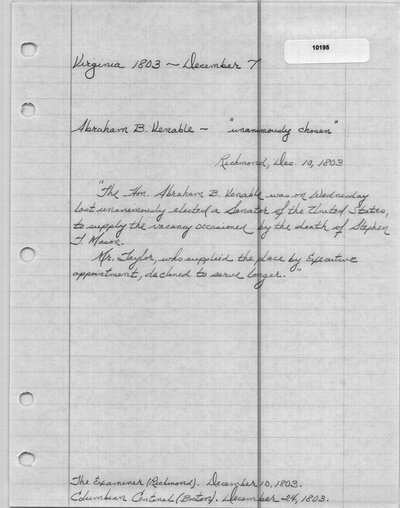 10195
Virginia 1803 - December 7
Abraham B. Venable - "unanimously chosen"
Richmond, Dec. 10, 1803
"The Hon. Abraham B. Venable was on Wednesday
last unanimously elected a Senator of the United States,
to supply the vacancy occasioned by the death of Stephen
T. Mason.
Mr. Taylor, who supplied the place by Executive
appointment, declined to serve longer."
The Examiner (Richmond). December 10, 1803.
Columbian Centinel (Boston). December 24, 1803.